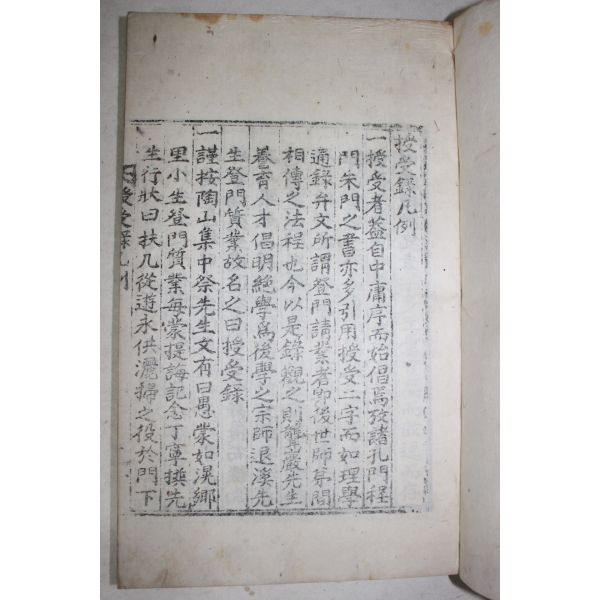 授受錄凡例
一授受者蓋自中庸序而始倡焉攷諸孔門程
門朱門之書亦多引用授受二字而如理學
通錄弁文所謂登門請業者卽後世師弟間
相傳之法程也今以是錄觀之則聾巖先生
養育人才倡明絶學爲後學之宗師退溪先
生登門質業故名之曰授受錄
一謹按陶山集中祭先生文有曰愚蒙如滉鄉
里小生登門質業每蒙提誨記念丁寧撰先
生行狀曰扶几從遊永供灑掃之役於門下
授受錄凡例